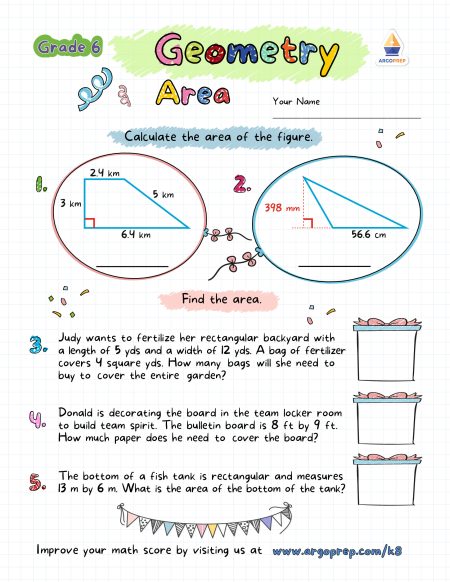 Grade 6
Geometry
ARGOPREP
Area
Your Name
Calculate the area of the figure.
1.
2.4 km
5 km
3 km
6.4 km
2.
398 mm
56.6 cm
Find the area.
3.
Judy wants to fertilize her rectangular backyard with
a length of 5 yds and a width of 12 yds. A bag of fertilizer
covers 4 square yds. How many bags will she need to
buy to cover the entire garden?
4.
Donald is decorating the board in the team locker room
to build team spirit. The bulletin board is 8 ft by 9 ft.
How much paper does he need to cover the board?
5.
The bottom of a fish tank is rectangular and measures
13 m by 6 m. What is the area of the bottom of the tank?
Improve your math score by visiting us at www.argoprep.com/k8